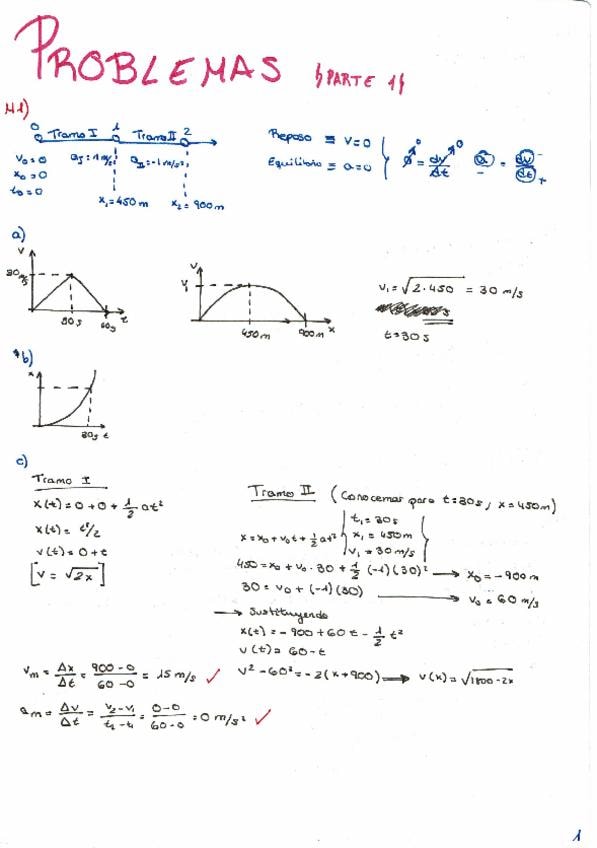 PROBLEMAS (PARTE 1)
M1)
0 Tramo I 1 Tramo II 2
v₀=0 a_I=1m/s² a_II=-1m/s²
x₀=0
t₀=0
x₁=450m x₂=900m
Reposo ≡ v=0
Equilibrio ≡ a=0
a)
v
30m/s
30s 60s t
v
v₁
450m 900m x
v₁=√2·450 = 30 m/s
t=30s
*b)
x
30s t
c)
Tramo I
x(t)=0+0+1/2 at²
x(t)=t²/2
v(t)=0+t
[v=√2x]
Tramo II (Conocemos para t=30s, x=450m)
x=x₀+v₀t+1/2 at²
t₁=30s
x₁=450m
v₁=30m/s
450=x₀+v₀·30+1/2(-1)(30)² → x₀=-900m
30=v₀+(-1)(30) → v₀=60m/s
→ Sustituyendo
x(t)=-900+60t-1/2 t²
v(t)=60-t
v²-60²=-2(x+900) → v(x)=√1800-2x
v_m=Δx/Δt=900-0/60-0=15m/s ✓
a_m=Δv/Δt=v₂-v₁/t₂-t₁=0-0/60-0=0m/s² ✓
1